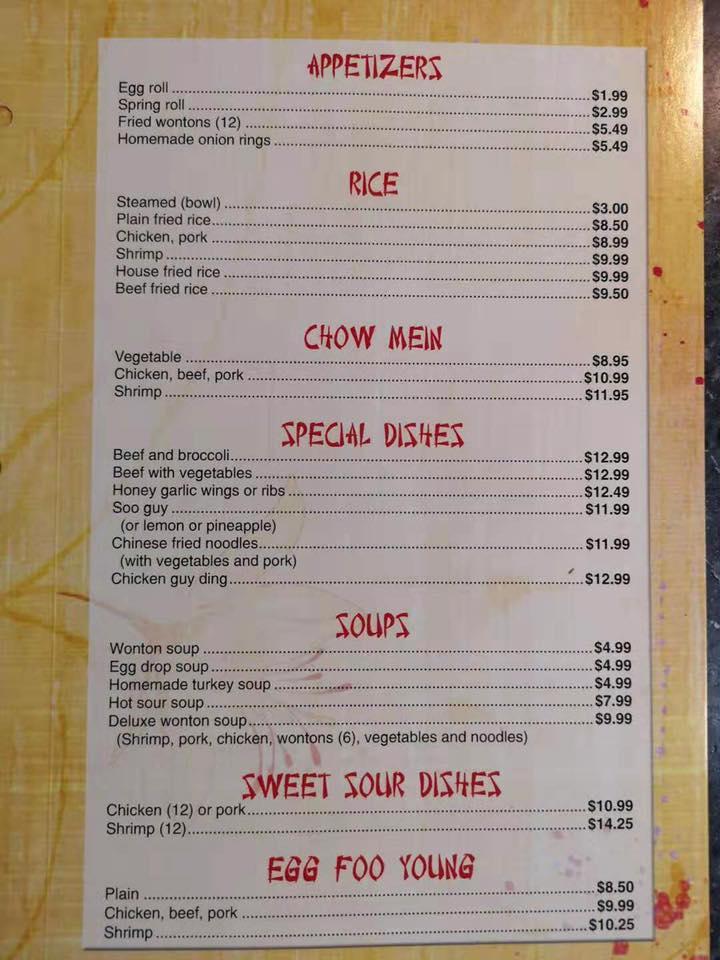 APPETIZERS
Egg roll ........ $1.99
Spring roll ........ $2.99
Fried wontons (12) ........ $5.49
Homemade onion rings ........ $5.49
RICE
Steamed (bowl) ........ $3.00
Plain fried rice ........ $8.50
Chicken, pork ........ $8.99
Shrimp ........ $9.99
House fried rice ........ $9.99
Beef fried rice ........ $9.50
CHOW MEIN
Vegetable ........ $8.95
Chicken, beef, pork ........ $10.99
Shrimp ........ $11.95
SPECIAL DISHES
Beef and broccoli ........ $12.99
Beef with vegetables ........ $12.99
Honey garlic wings or ribs ........ $12.49
Soo guy ........ $11.99
(or lemon or pineapple)
Chinese fried noodles ........ $11.99
(with vegetables and pork)
Chicken guy ding ........ $12.99
SOUPS
Wonton soup ........ $4.99
Egg drop soup ........ $4.99
Homemade turkey soup ........ $4.99
Hot sour soup ........ $7.99
Deluxe wonton soup ........ $9.99
(Shrimp, pork, chicken, wontons (6), vegetables and noodles)
SWEET SOUR DISHES
Chicken (12) or pork ........ $10.99
Shrimp (12) ........ $14.25
EGG FOO YOUNG
Plain ........ $8.50
Chicken, beef, pork ........ $9.99
Shrimp ........ $10.25